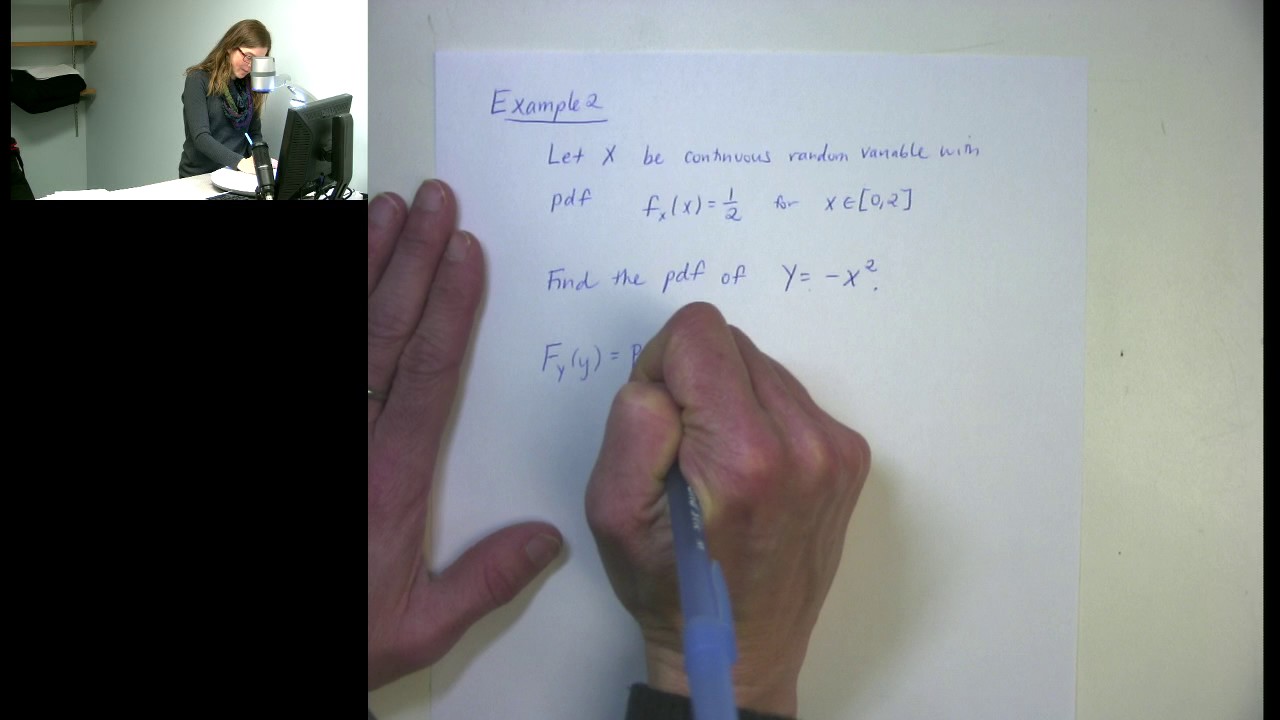 Example 2
Let X be continuous random variable with
pdf fₓ(x) = 1/2 for x ∈ [0,2]
Find the pdf of Y = -X².
F_Y(y) = P